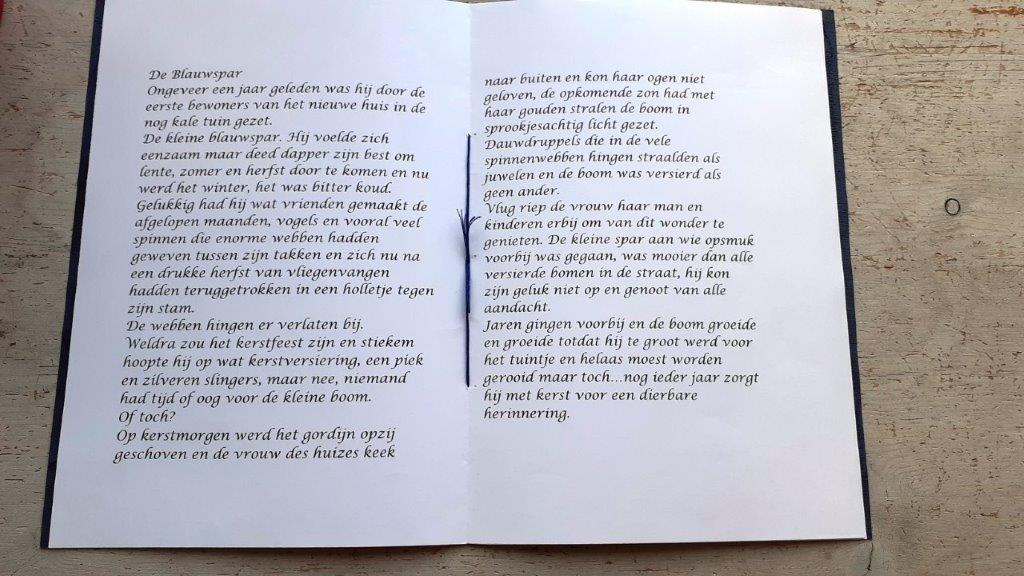 De Blauwspar
Ongeveer een jaar geleden was hij door de
eerste bewoners van het nieuwe huis in de
nog kale tuin gezet.
De kleine blauwspar. Hij voelde zich
eenzaam maar deed dapper zijn best om
lente, zomer en herfst door te komen en nu
werd het winter, het was bitter koud.
Gelukkig had hij wat vrienden gemaakt de
afgelopen maanden, vogels en vooral veel
spinnen die enorme webben hadden
geweven tussen zijn takken en zich nu na
een drukke herfst van vliegenvangen
hadden teruggetrokken in een holletje tegen
zijn stam.
De webben hingen er verlaten bij.
Weldra zou het kerstfeest zijn en stiekem
hoopte hij op wat kerstversiering, een piek
en zilveren slingers, maar nee, niemand
had tijd of oog voor de kleine boom.
Of toch?
Op kerstmorgen werd het gordijn opzij
geschoven en de vrouw des huizes keek
naar buiten en kon haar ogen niet
geloven, de opkomende zon had met
haar gouden stralen de boom in
sprookjesachtig licht gezet.
Dauwdruppels die in de vele
spinnenwebben hingen straalden als
juwelen en de boom was versierd als
geen ander.
Vlug riep de vrouw haar man en
kinderen erbij om van dit wonder te
genieten. De kleine spar aan wie opsmuk
voorbij was gegaan, was mooier dan alle
versierde bomen in de straat, hij kon
zijn geluk niet op en genoot van alle
aandacht.
Jaren gingen voorbij en de boom groeide
en groeide totdat hij te groot werd voor
het tuintje en helaas moest worden
gerooid maar toch...nog ieder jaar zorgt
hij met kerst voor een dierbare
herinnering.